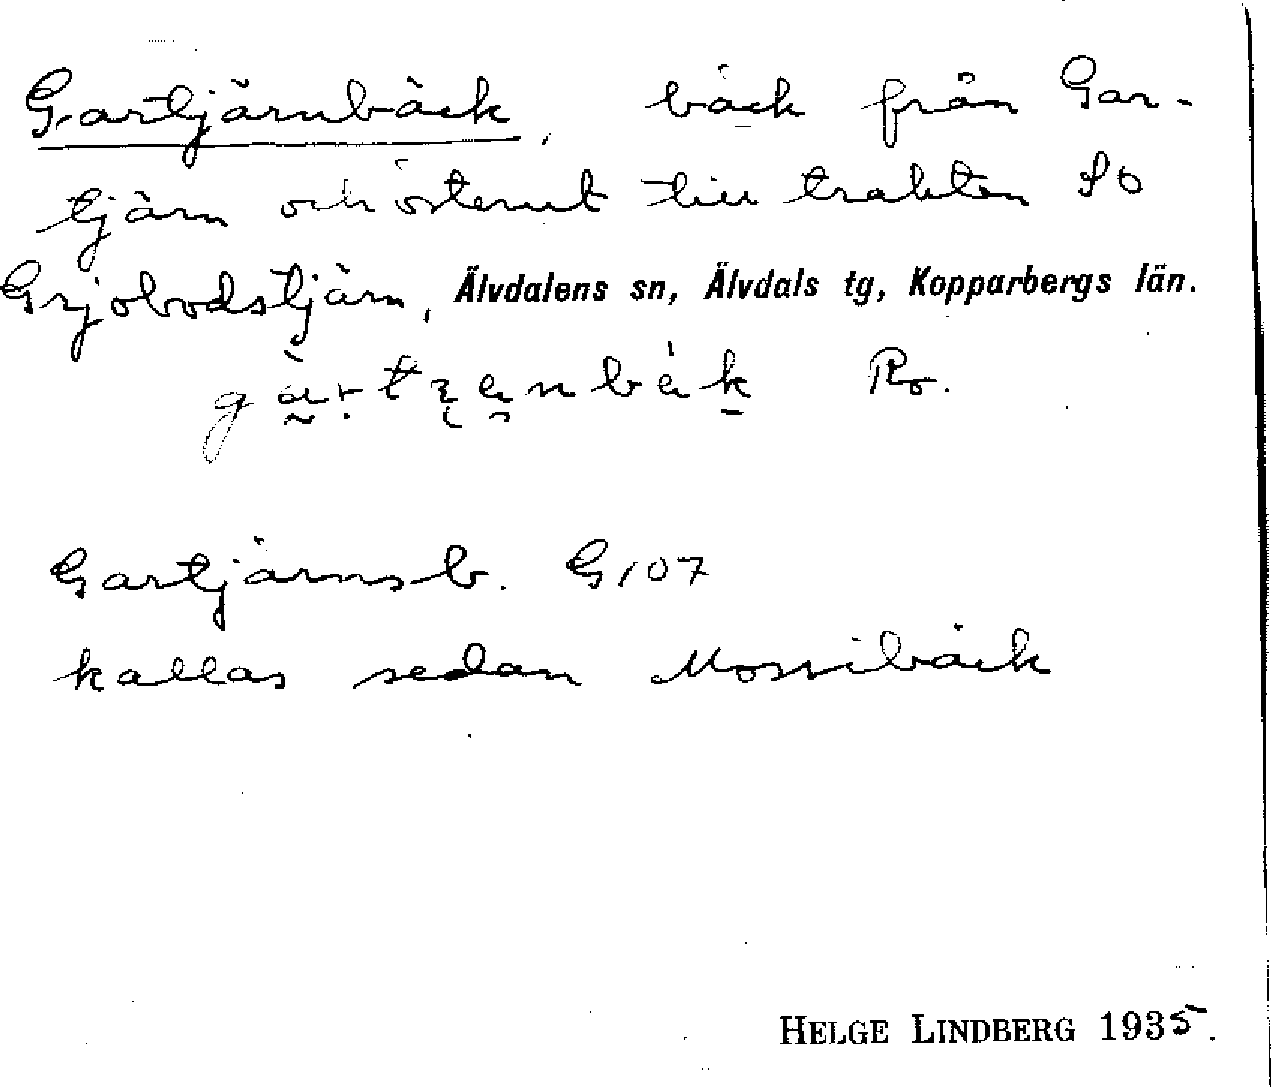 Gartjärnbäck, bäck från Gar-
tjärn och österut till trakten SO
Grjobodstjärn, Älvdalens sn, Älvdals tg, Kopparbergs län.
Ro.
Gartjärnsb. G107
kallas sedan Mossibäck
HELGE LINDBERG 1935.